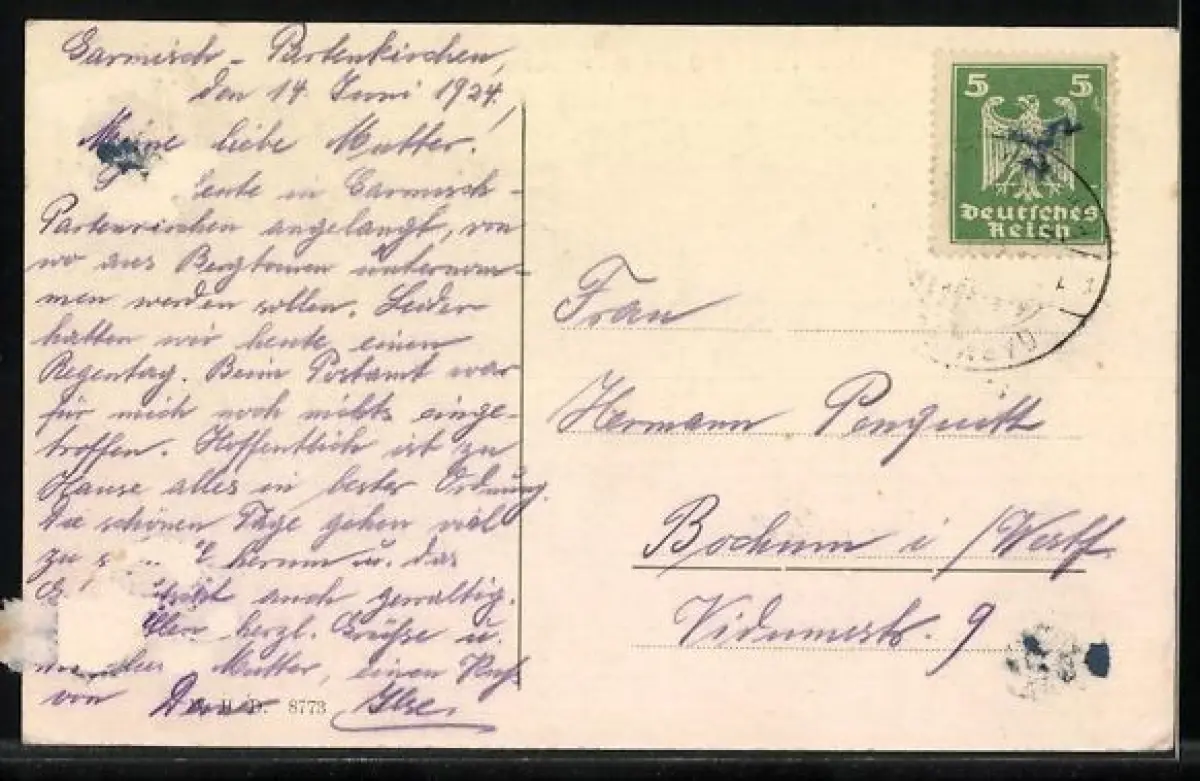 Garmisch - Partenkirchen,
den 14. Juni 1924.
Meine liebe Mutter!
heute in Garmisch-
Partenkirchen angelangt, von
wo aus Bergtouren unternom-
men werden sollen. Leider
hatten wir heute einen
Regentag. Beim Postamt war
für mich noch nichts einge-
troffen. Hoffentlich ist zu
Hause alles in bester Ordnung.
Die schönen Tage gehen viel
zu herum u. das
auch gewaltig.
herzl. Grüsse u.
Mutter, einen Kuß
von Ilse.
8773
5 5
Deutsches
Reich
Frau
Hermann
Bochum i/Westf.
Vidumestr. 9